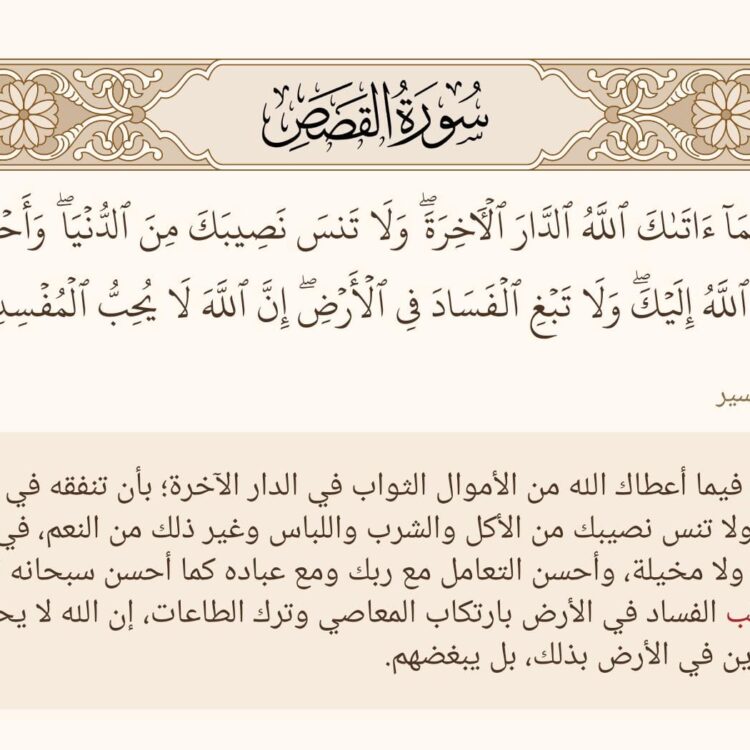 سُورَةُ القَصَصِ
مَآ ءَاتَىٰكَ ٱللَّهُ ٱلدَّارَ ٱلْأَخِرَةَۖ وَلَا تَنسَ نَصِيبَكَ مِنَ ٱلدُّنْيَاۖ وَأَحْ
ٱللَّهُ إِلَيْكَۖ وَلَا تَبْغِ ٱلْفَسَادَ فِي ٱلْأَرْضِۖ إِنَّ ٱللَّهَ لَا يُحِبُّ ٱلْمُفْسِدِ
سير
فيما أعطاك الله من الأموال الثواب في الدار الآخرة؛ بأن تنفقه في
ولا تنس نصيبك من الأكل والشرب واللباس وغير ذلك من النعم، في
ولا مخيلة، وأحسن التعامل مع ربك ومع عباده كما أحسن سبحانه
ب الفساد في الأرض بارتكاب المعاصي وترك الطاعات، إن الله لا يح
ين في الأرض بذلك، بل يبغضهم.